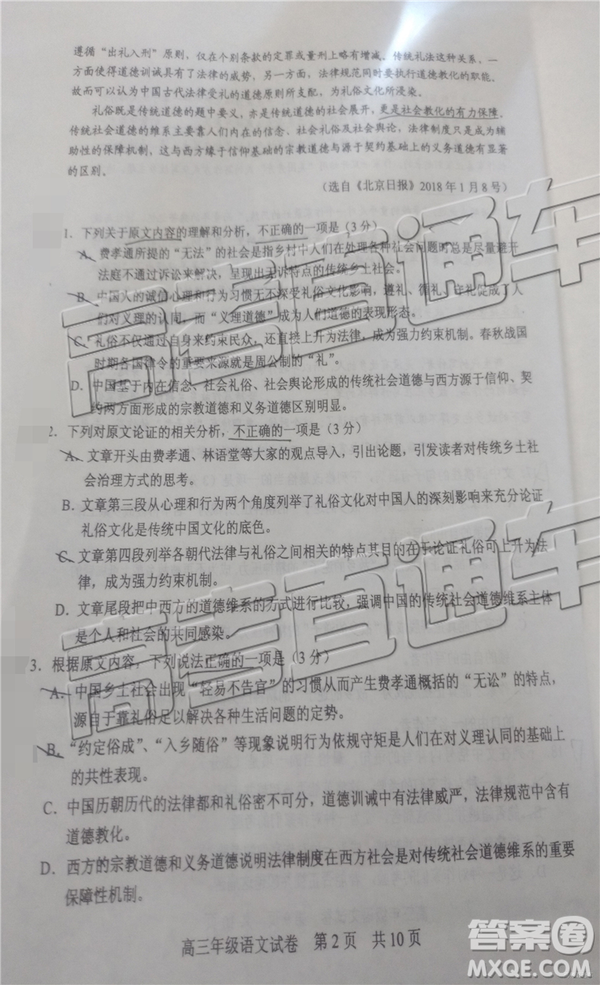 遵循“出礼入刑”原则，仅在个别条款的定罪或量刑上略有增减。传统礼法这种关系，一
方面使得道德训诫具有了法律的威势，另一方面，法律规范同时又要执行道德教化的职能。
故而可以认为中国古代法律受礼的道德原则所支配，为礼俗文化所浸染。
礼俗既是传统道德的题中要义，亦是传统道德的社会展开，更是社会教化的有力保障。
传统社会道德的维系主要靠人们内在的信念、社会礼俗以及社会舆论，法律制度只是成为辅
助性的保障机制，这与西方缘于信仰基础的宗教道德与源于契约基础上的义务道德有显著
的区别。
（选自《北京日报》2018年1月8号）
1. 下列关于原文内容的理解和分析，不正确的一项是（3分）
A. 费孝通所提的“无法”的社会是指乡村中人们在处理各种社会问题时总是尽量避开
法庭不通过诉讼来解决，呈现出无诉特点的传统乡土社会。
B. 中国人的诚信心理和行为习惯无不深受礼俗文化影响，遵礼、循礼、守礼促成了人
们对义理的认同，而“义理道德”成为人们道德的表现形态。
C. 礼俗不仅通过自身来约束民众，还直接上升为法律，成为强力约束机制。春秋战国
时期各国律令的重要来源就是周公制的“礼”。
D. 中国基于内在信念、社会礼俗、社会舆论形成的传统社会道德与西方源于信仰、契
约两方面形成的宗教道德和义务道德区别明显。
2. 下列对原文论证的相关分析，不正确的一项是（3分）
A. 文章开头由费孝通、林语堂等大家的观点导入，引出论题，引发读者对传统乡土社
会治理方式的思考。
B. 文章第三段从心理和行为两个角度列举了礼俗文化对中国人的深刻影响来充分论证
礼俗文化是传统中国文化的底色。
C. 文章第四段列举各朝代法律与礼俗之间相关的特点其目的在于论证礼俗可上升为法
律，成为强力约束机制。
D. 文章尾段把中西方的道德维系的方式进行比较，强调中国的传统社会道德维系主体
是个人和社会的共同感染。
3. 根据原文内容，下列说法正确的一项是（3分）
A. 中国乡土社会出现“轻易不告官”的习惯从而产生费孝通概括的“无讼”的特点，
源自于靠礼俗足以解决各种生活问题的定势。
B. “约定俗成”、“入乡随俗”等现象说明行为依规守矩是人们在对义理认同的基础上
的共性表现。
C. 中国历朝历代的法律都和礼俗密不可分，道德训诫中有法律威严，法律规范中含有
道德教化。
D. 西方的宗教道德和义务道德说明法律制度在西方社会是对传统社会道德维系的重要
保障性机制。
高三年级语文试卷 第2页 共10页
高考直通车
高考直通车
答案圈
MXQE.COM